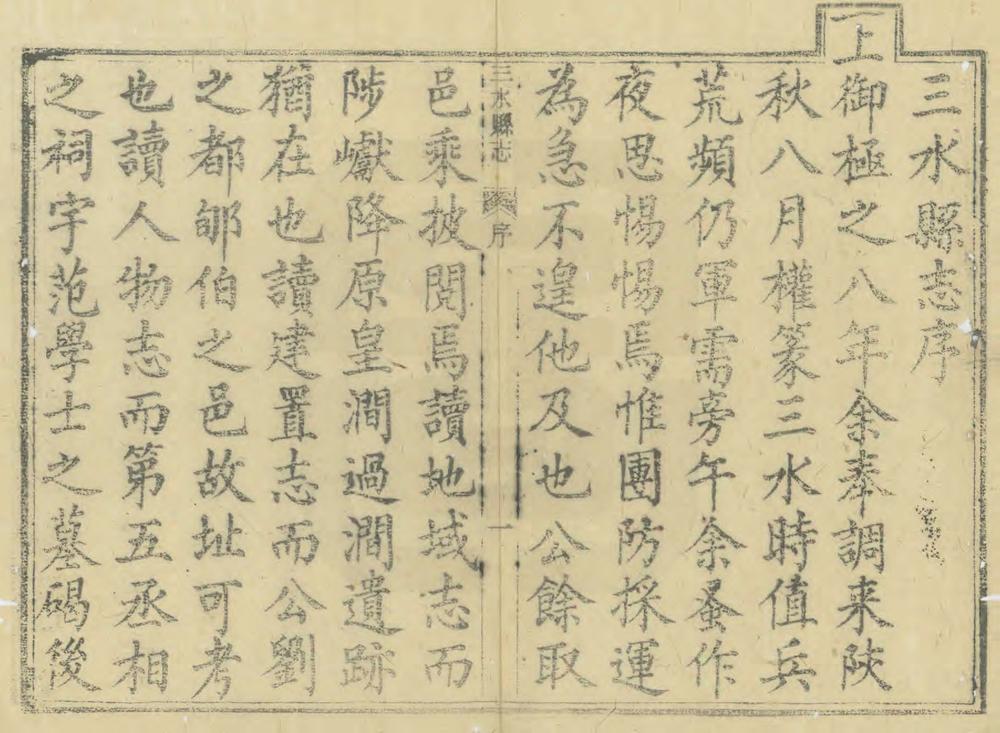 三水縣志序
上御極之八年余奉調来陝
秋八月權篆三水時值兵
荒頻仍軍需旁午余蚤作
夜思惕惕焉惟團防採運
為急不遑他及也公餘取
三水縣志 序 一
邑乘披閱焉讀地域志而
陟巘降原皇澗過澗遺跡
猶在也讀建置志而公劉
之都郇伯之邑故址可考
也讀人物志而第五丞相
之祠宇范學士之墓碣後